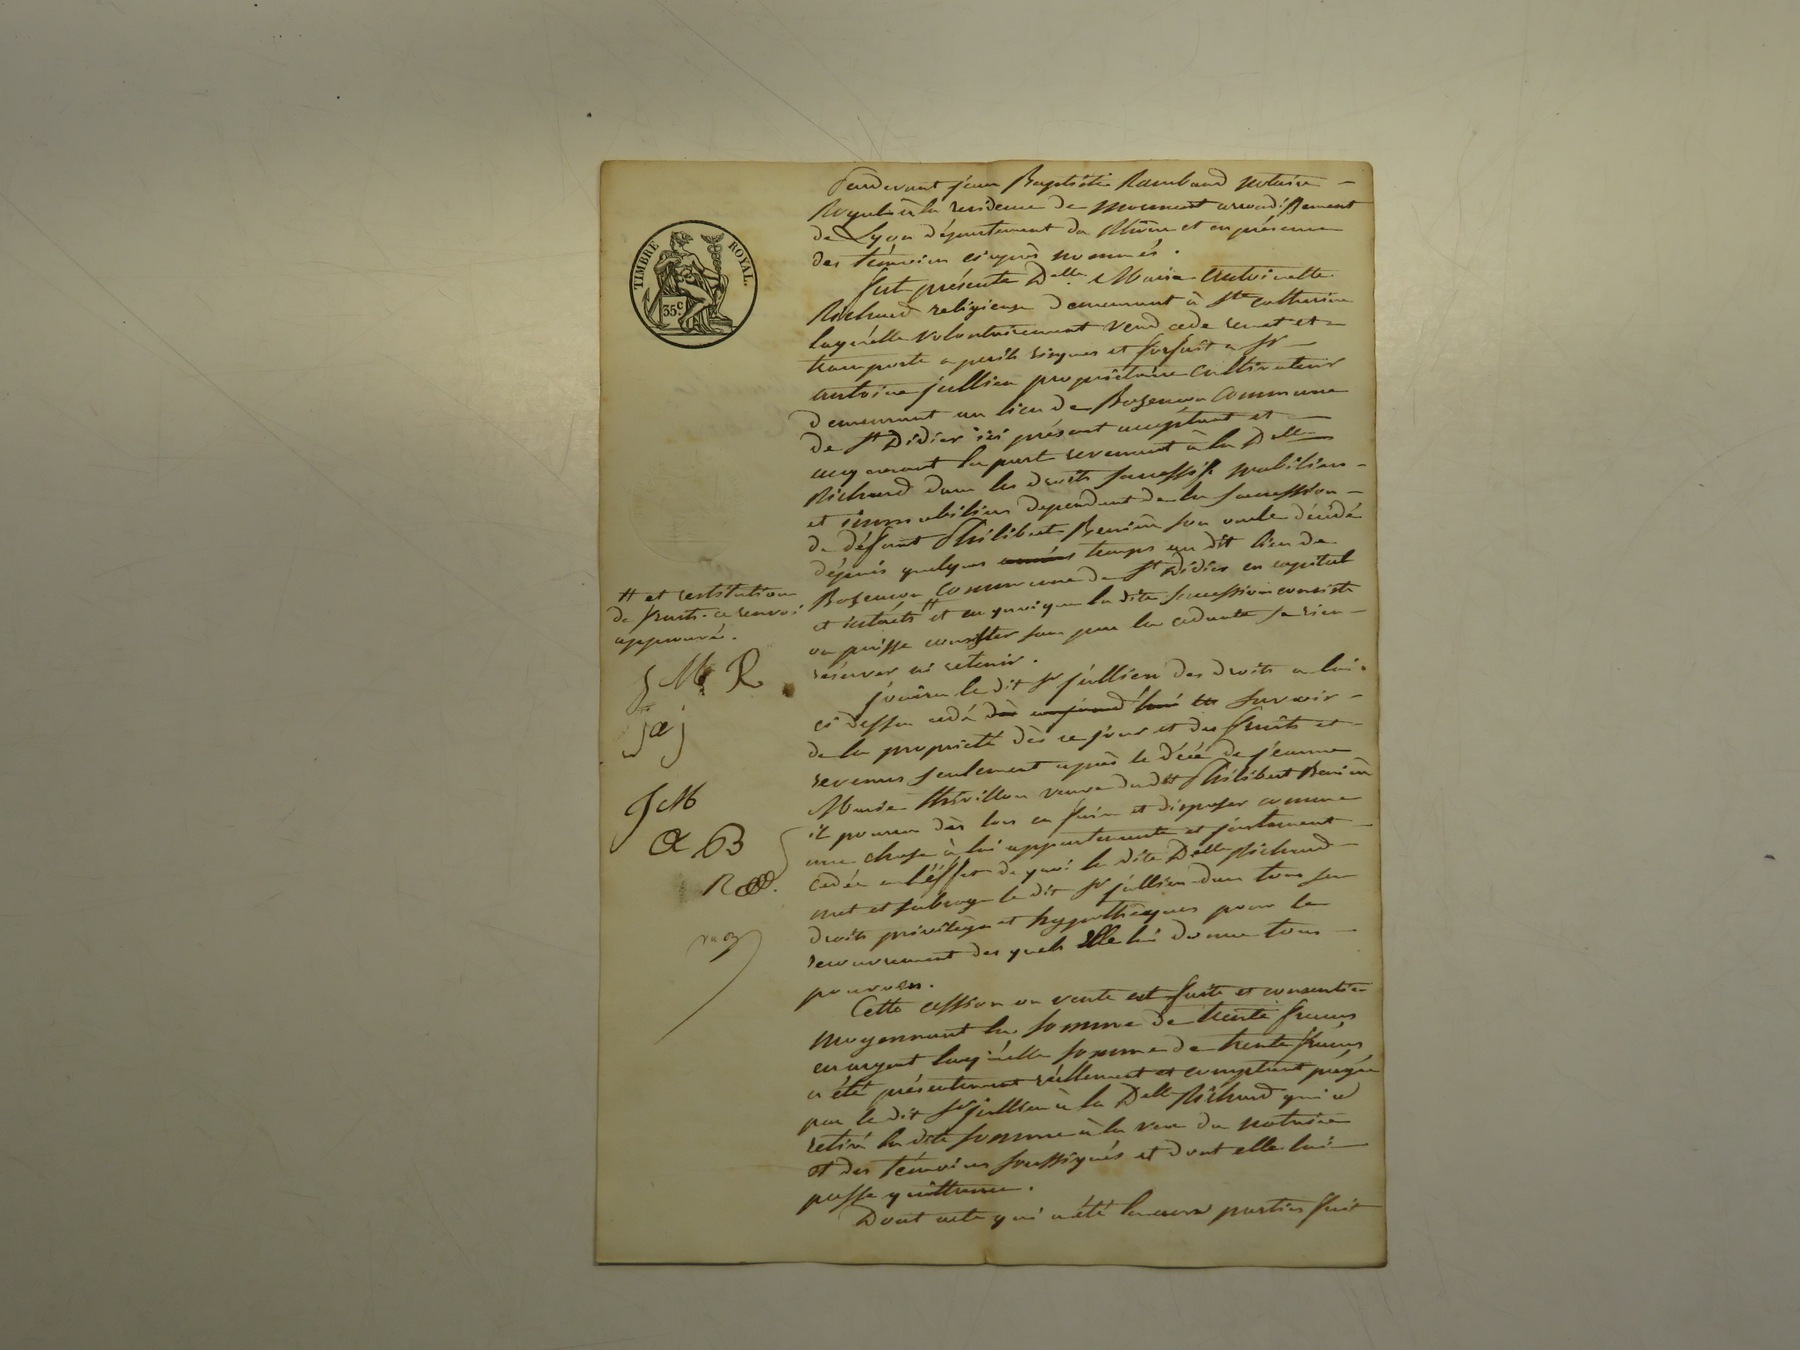 TIMBRE ROYAL.
35c
Pardevant jean Baptiste Rambaud notaire
Royal à la residence de Mornant arrondissement
de Lyon département du Rhône et en présence
des témoins ci après nommés.
fut présente Dlle. Marie Antoinette
Richard religieuse demeurant à Ste catherine
laquelle volontairement vend cede remet et
transporte a perils risques et forfait a Sr
antoine jullien propriétaire cultivateur
demeurant au lieu de Commune
de St Didier ici présent acceptant et
acquerant la part revenant à la Dlle
Richard dans les droits successifs mobiliers
et immobiliers dependant de la succession
de défunt Philibert son oncle décédé
dépuis quelques années temps au dit lieu de
Commune de St Didier en capital
et intérêts # et en quoi que la dite succession consiste
ou puisse consister sans par la cedante se rien
réserver ni retenir.
# et restitution
de fruits. ce renvoi
approuvé.
J M R
j a j
J M
R
jouira le dit Sr jullien des droits a lui
ci dessus cedé dès aujourd'hui survoir
de la proprieté dès ce jour et des fruits et
revenus seulement après le décé de jeanne
Marie veuve du dt Philibert
il pourra dès lors en faire et disposer comme
une chose à lui appartenante et justement
cedée a l'éffet de quoi la dite Dlle Richard
met et subroge le dit Sr jullien dans tous ses
droits privilèges et hypothèques pour le
recouvrement des quels elle lui donne tous
pouvoirs.
Cette cession ou vente est faite et consentie
moyennant la somme de trente francs
en argent laquelle somme de trente francs
a été présentement réellement et comptant payée
par le dit Sr jullien à la Dlle Richard qui a
retiré la dite somme à la vue du notaire
et des témoins soussignés et dont elle lui
passe quittance.
Dont acte qui a été lu aux parties fait